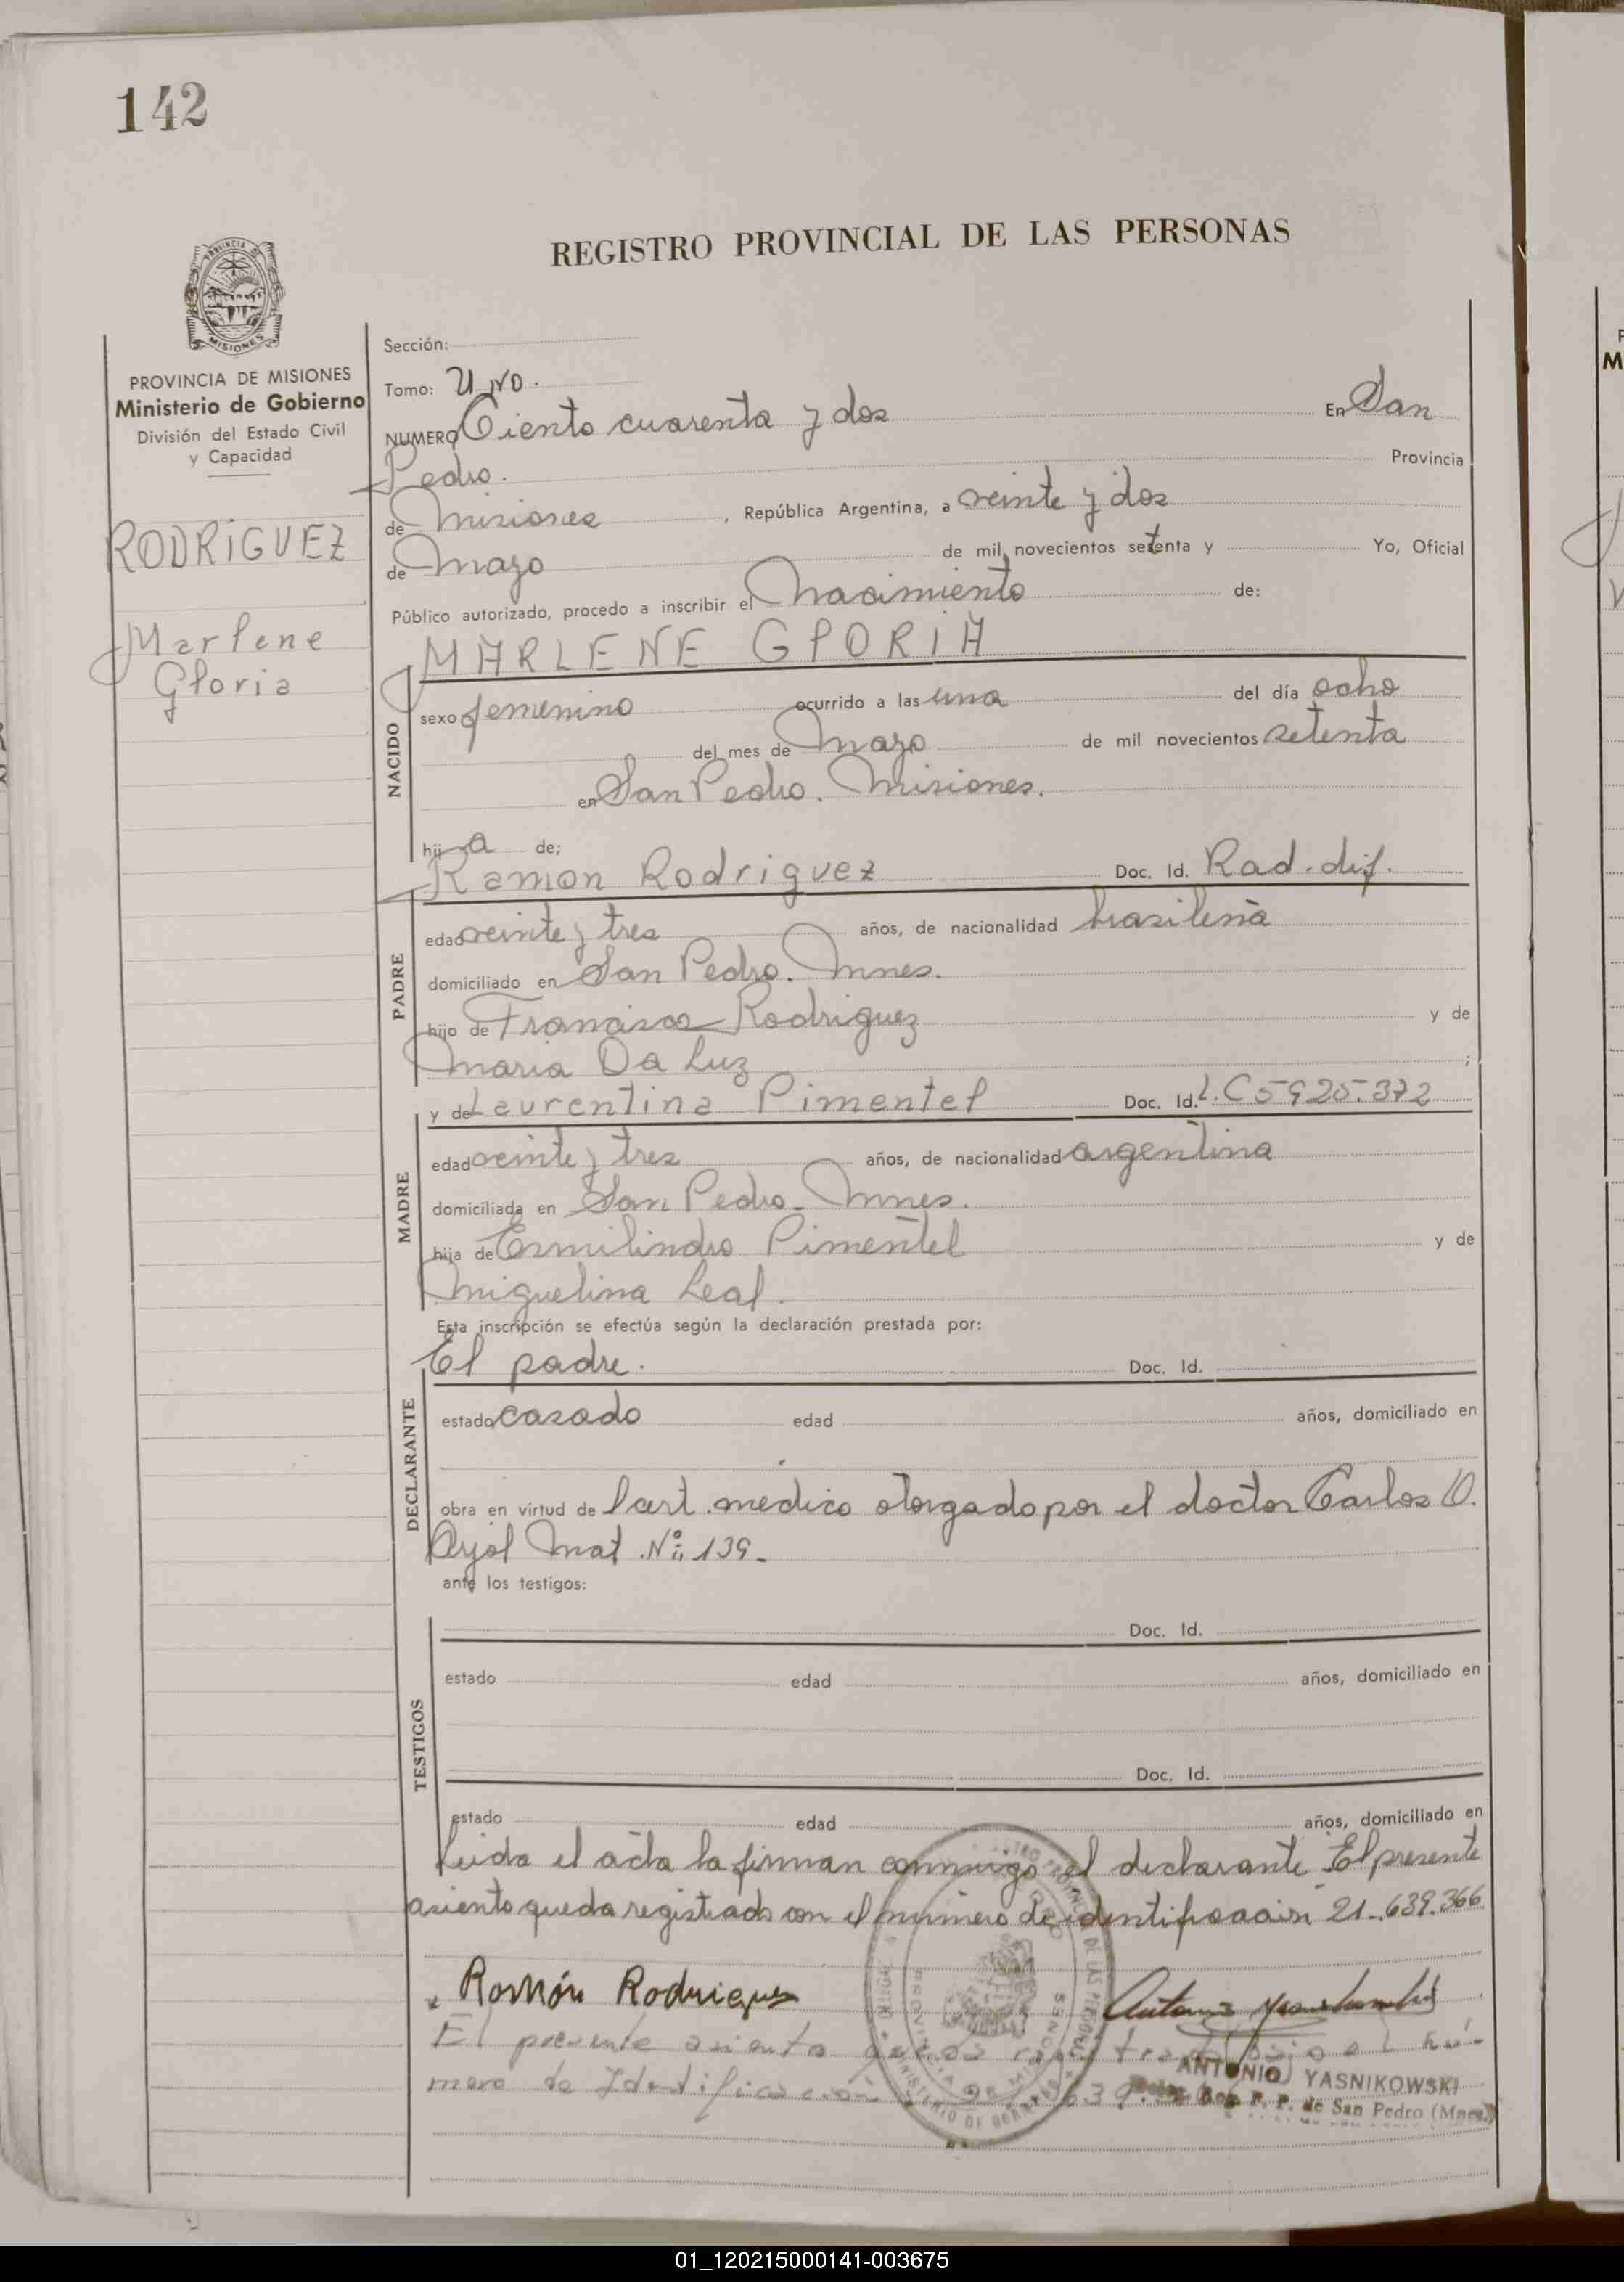 142
REGISTRO PROVINCIAL DE LAS PERSONAS
PROVINCIA DE
MISIONES
PROVINCIA DE MISIONES
Ministerio de Gobierno
División del Estado Civil
y Capacidad
RODRIGUEZ
Marlene
Gloria
Sección:
Tomo: UNO.
NUMERO Ciento cuarenta y dos En San
Pedro. Provincia
de Misiones, República Argentina, a veinte y dos
de Mayo de mil novecientos setenta y Yo, Oficial
Público autorizado, procedo a inscribir el Nacimiento de:
MARLENE GLORIA
NACIDO
sexo femenino ocurrido a las una del día ocho
del mes de Mayo de mil novecientos setenta
en San Pedro. Misiones.
hija de:
Ramon Rodriguez Doc. Id. Rad. dif.
PADRE
edad veinte y tres años, de nacionalidad brasileña
domiciliado en San Pedro. Mnes.
hijo de Francisco Rodriguez y de
Maria Da Luz ;
y de Laurentina Pimentel Doc. Id. L.C 5925.372
MADRE
edad veinte y tres años, de nacionalidad argentina
domiciliada en San Pedro. Mnes.
hija de Ermilindro Pimentel y de
Miguelina Leal.
Esta inscripción se efectúa según la declaración prestada por:
El padre. Doc. Id.
DECLARANTE
estado casado edad años, domiciliado en
obra en virtud de cert. medico otorgado por el doctor Carlos O.
Mat. Nº 139.
ante los testigos:
Doc. Id.
TESTIGOS
estado edad años, domiciliado en
Doc. Id.
estado edad años, domiciliado en
Leida el acta la firman conmigo el declarante El presente
asiento queda registrado con el número de identificación 21.639.366
Ramón Rodriguez
El presente asiento queda registrado bajo el nú-
mero de Identificacion 639.
ANTONIO YASNIKOWSKI
R. P. de San Pedro (Mnes.)
01_120215000141-003675